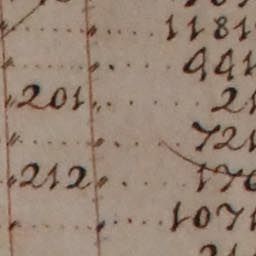 1181
441
201 21
721
212 176
1071